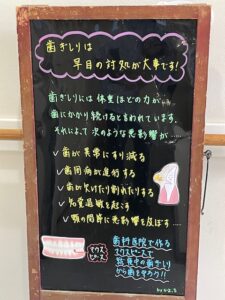 歯ぎしりは
早目の対処が大事です!
歯ぎしりには 体重ほどの力が
歯にかかり続けると言われています。
それによって、次のような悪影響が……
✓歯が異常にすり減る
✓歯周病が進行する
✓歯が欠けたり割れたりする
✓知覚過敏を起こす
✓顎の関節に悪影響を及ぼす……
マウス
ピース
歯科医院で作る
マウスピースで
就寝中の歯ぎしり
から歯を守ろう!!